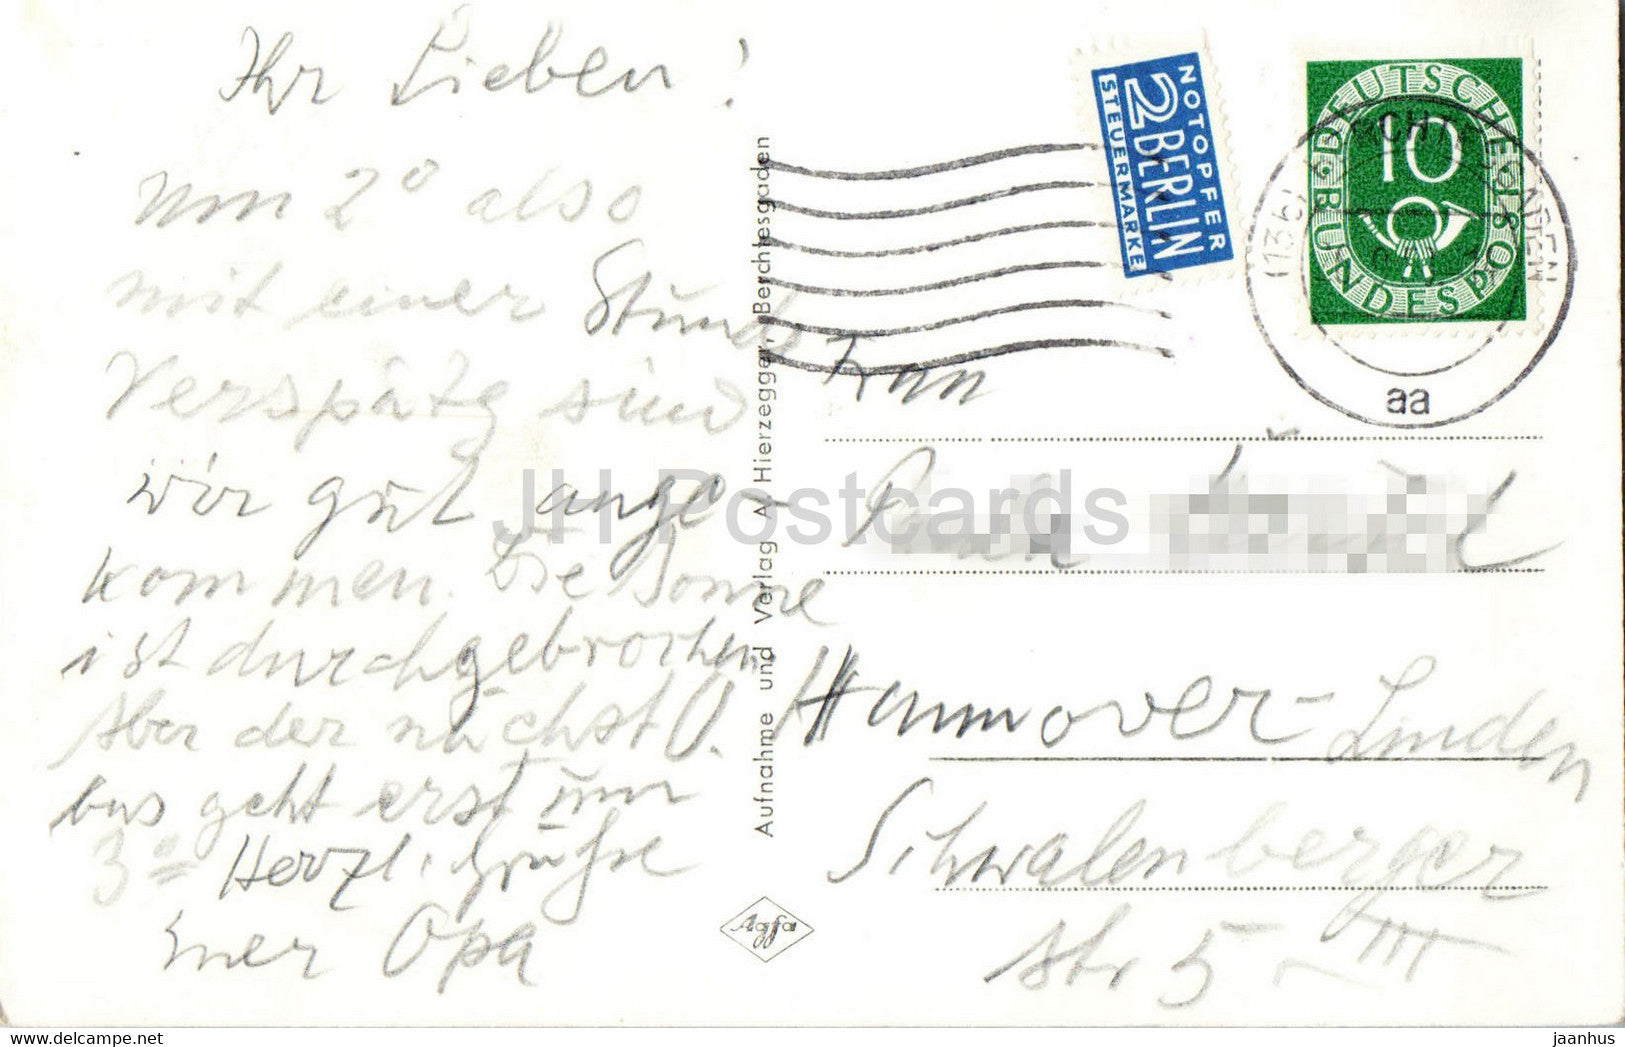 Ihr Lieben!
um 2º also
mit einer Stunde
Verspätg sind
wir gut ange-
kommen. Die Sonne
ist durchgebrochen
Aber der nächst O.
bus geht erst um
3º Herzl. Grüße
Euer Opa
Aufnahme und Verlag A. Hierzegger, Berchtesgaden
Agfa
NOTOPFER
2 BERLIN
STEUERMARKE
DEUTSCHE
10
BUNDESPOST
(13b)
aa
Frau
Hannover-Linden
Schwalenberger
Str 5 III
JH Postcards
delcampe.net
jaanhus